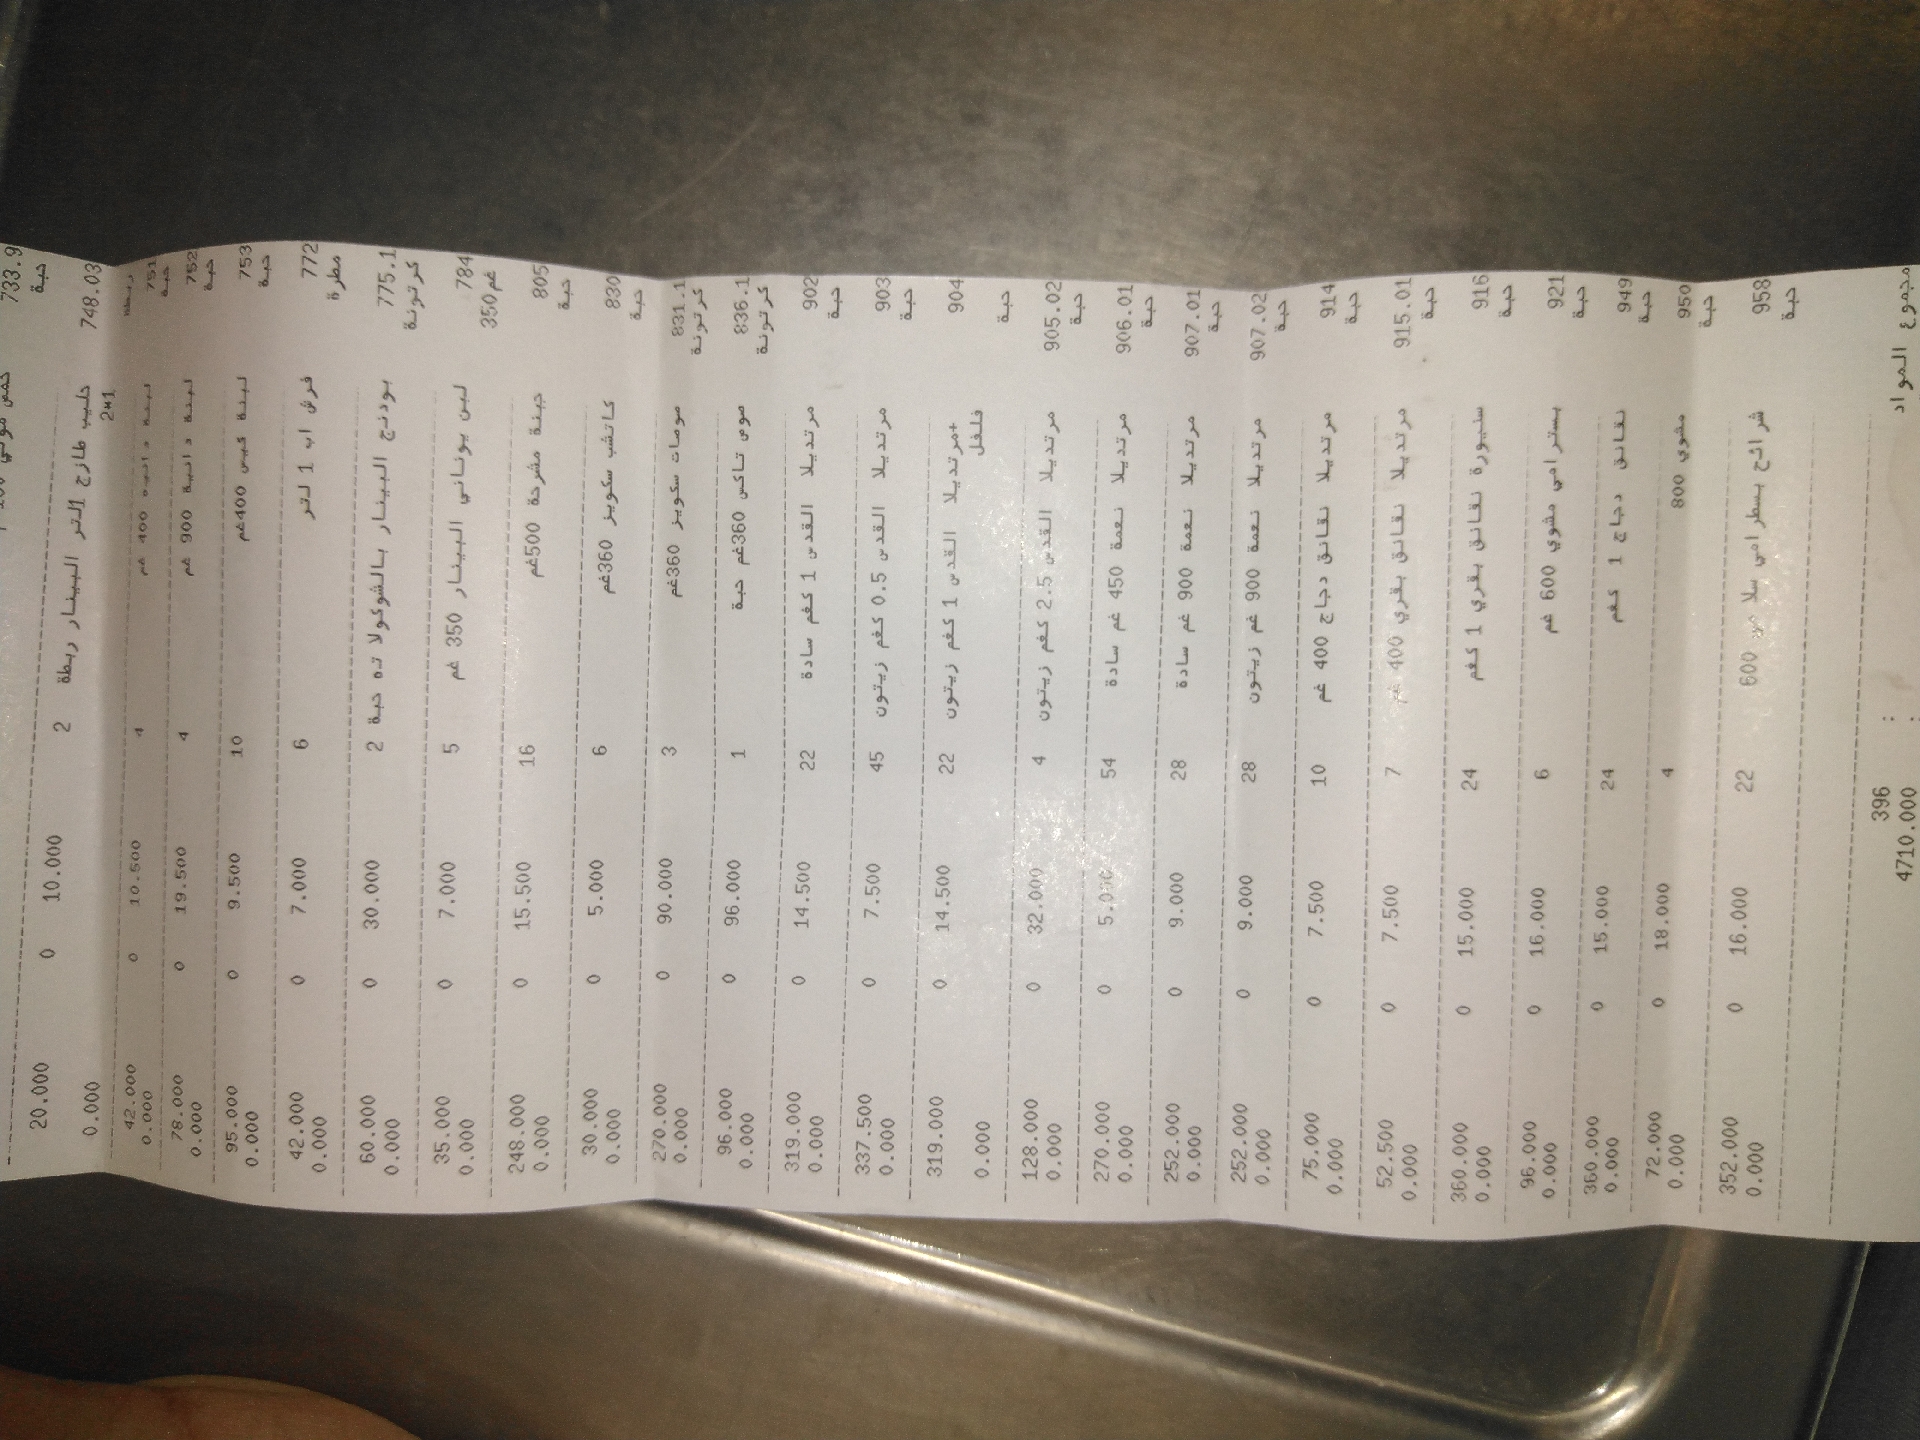 733.9
حبة
748.03 حليب طازج 1لتر البينار ربطة 2 10.000 0 20.000
ربطة 2*1 0.000
751 لبنة دانيه 400 غم 4 10.500 0 42.000
حبة 0.000
752 لبنة دانية 900 غم 4 19.500 0 78.000
حبة 0.000
753 لبنة كيس 400غم 10 9.500 0 95.000
حبة 0.000
772 فرش اب 1 لتر 6 7.000 0 42.000
مطرة 0.000
775.1 بودنج البينار بالشوكولا ته حبة 2 30.000 0 60.000
كرتونة 0.000
784 لبن يوناني البينار 350 غم 5 7.000 0 35.000
350غم 0.000
805 جبنة مشرحة 500غم 16 15.500 0 248.000
حبة 0.000
830 كاتشب سكويز 360غم 6 5.000 0 30.000
حبة 0.000
831.1 مومات سكويز 360غم 3 90.000 0 270.000
كرتونة 0.000
836.1 موص تاكس 360غم حبة 1 96.000 0 96.000
كرتونة 0.000
902 مرتديلا القدس 1 كغم سادة 22 14.500 0 319.000
حبة 0.000
903 مرتديلا القدس 0.5 كغم زيتون 45 7.500 0 337.500
حبة 0.000
904 مرتديلا القدس 1 كغم زيتون+ 22 14.500 0 319.000
فلفل
حبة 0.000
905.02 مرتديلا القدس 2.5 كغم زيتون 4 32.000 0 128.000
حبة 0.000
906.01 مرتديلا نعمة 450 غم سادة 54 5.000 0 270.000
حبة 0.000
907.01 مرتديلا نعمة 900 غم سادة 28 9.000 0 252.000
حبة 0.000
907.02 مرتديلا نعمة 900 غم زيتون 28 9.000 0 252.000
حبة 0.000
914 مرتديلا نقانق دجاج 400 غم 10 7.500 0 75.000
حبة 0.000
915.01 مرتديلا نقانق بقري 400 غم 7 7.500 0 52.500
حبة 0.000
916 سنيورة نقانق بقري 1 كغم 24 15.000 0 360.000
حبة 0.000
921 بسترامي مشوي 600 غم 6 16.000 0 96.000
حبة 0.000
949 نقانق دجاج 1 كغم 24 15.000 0 360.000
حبة 0.000
950 مشوي 800 4 18.000 0 72.000
حبة 0.000
958 شرائح بسطرامي سلا مي 600 22 16.000 0 352.000
حبة 0.000
مجموع المواد : 396
: 4710.000